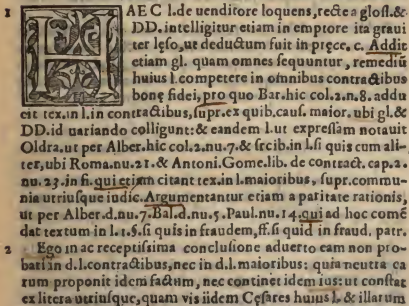 1 HAEC l.de uenditore loquens,recte a gloss.&
DD. intelligitur etiam in emptore ita graui
ter lęso,ut deductum fuit in pręce. c. Addit
etiam gl. quam omnes sequuntur, remediũ
huius l.competere in omnibus contractibus
bonę fidei, pro quo Bar.hic col.2.n.8. addu
cit tex.in l.in contractibus, supr.ex quib.caus. maior. ubi gl.&
DD.id uariando colligunt:& eandem l.ut expressam notauit
Oldra.ut per Alber.hic col.2.nu.7.& scrib.in l.si quis cum ali-
ter,ubi Roma.nu.21.& Antoni.Gome.lib. de contract. cap.2.
nu.23.in fi.qui etiam citant tex.in l.maioribus, supr.commu-
nia utriusque iudic. Argumentantur etiam a paritate rationis,
ut per Alber.d.nu.7.Bal.d.nu.5.Paul.nu.14.qui ad hoc comẽ
dat textum in l.1.§.si quis in fraudem,ff.si quid in fraud. patr.
2 Ego in ac receptissima conclusione aduerto eam non pro-
bari in d.l.contractibus,nec in d.l.maioribus: quia neutra ea
rum proponit idem factum, nec continet idem ius:ut constat
ex litera utriusque,quam vis iidem Cęsares huius l. & illarum